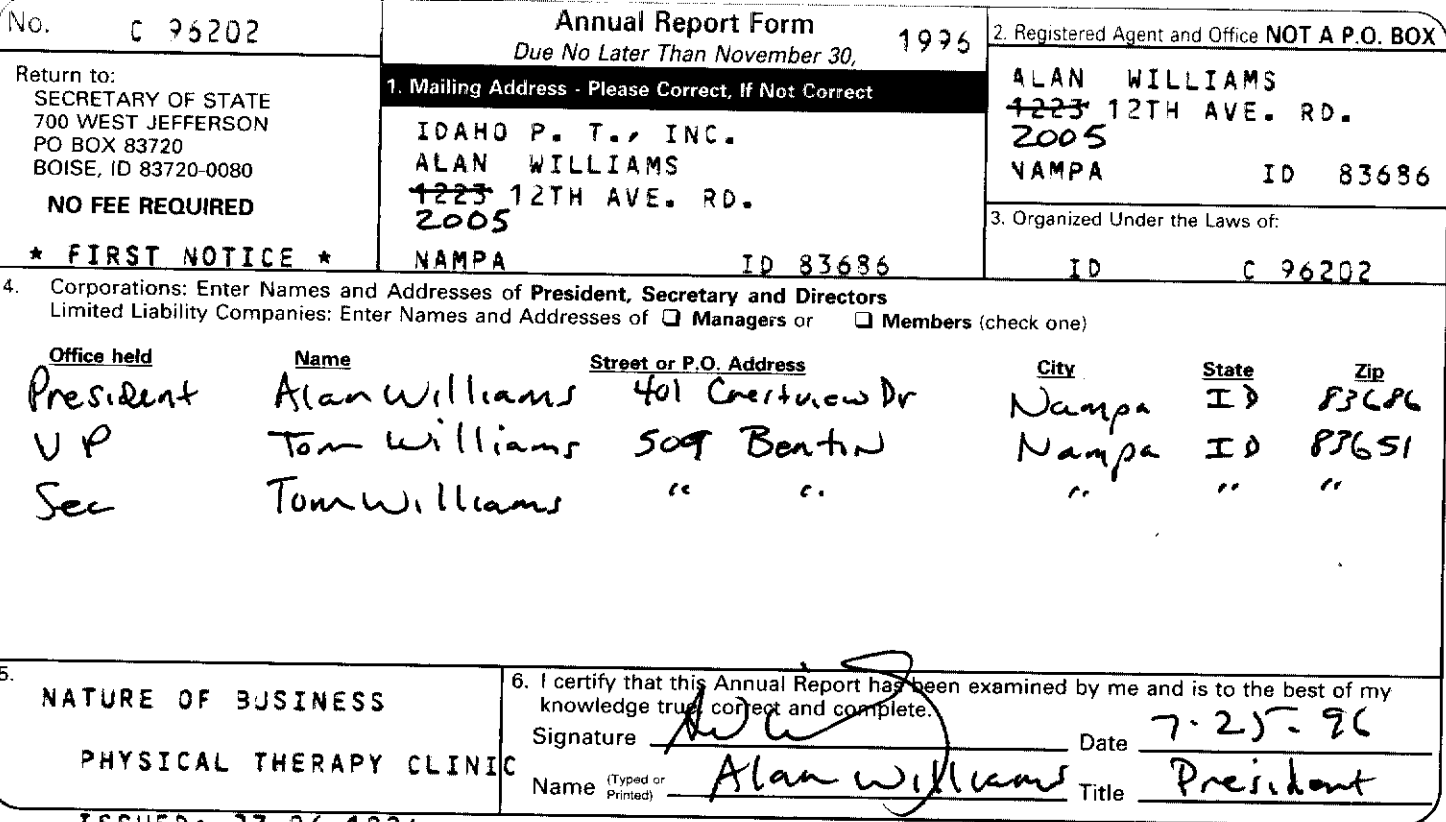 No. C 96202
Annual Report Form 1996
Due No Later Than November 30,
Return to:
SECRETARY OF STATE
700 WEST JEFFERSON
PO BOX 83720
BOISE, ID 83720-0080
NO FEE REQUIRED
* FIRST NOTICE *
1. Mailing Address - Please Correct, If Not Correct
IDAHO P. T., INC.
ALAN WILLIAMS
1223 12TH AVE. RD.
2005
NAMPA ID 83686
2. Registered Agent and Office NOT A P.O. BOX
ALAN WILLIAMS
1223 12TH AVE. RD.
2005
NAMPA ID 83686
3. Organized Under the Laws of:
ID C 96202
4. Corporations: Enter Names and Addresses of President, Secretary and Directors
Limited Liability Companies: Enter Names and Addresses of ❑ Managers or ❑ Members (check one)
Office held Name Street or P.O. Address City State Zip
President Alan Williams 401 Crestview Dr Nampa ID 83686
VP Tom Williams 509 Nampa ID 83651
Sec Tom Williams " " " " "
5. NATURE OF BUSINESS
PHYSICAL THERAPY CLINIC
6. I certify that this Annual Report has been examined by me and is to the best of my
knowledge true, correct and complete.
Signature Date 7.25.96
Name (Typed or Printed) Alan Williams Title President
ISSUED: